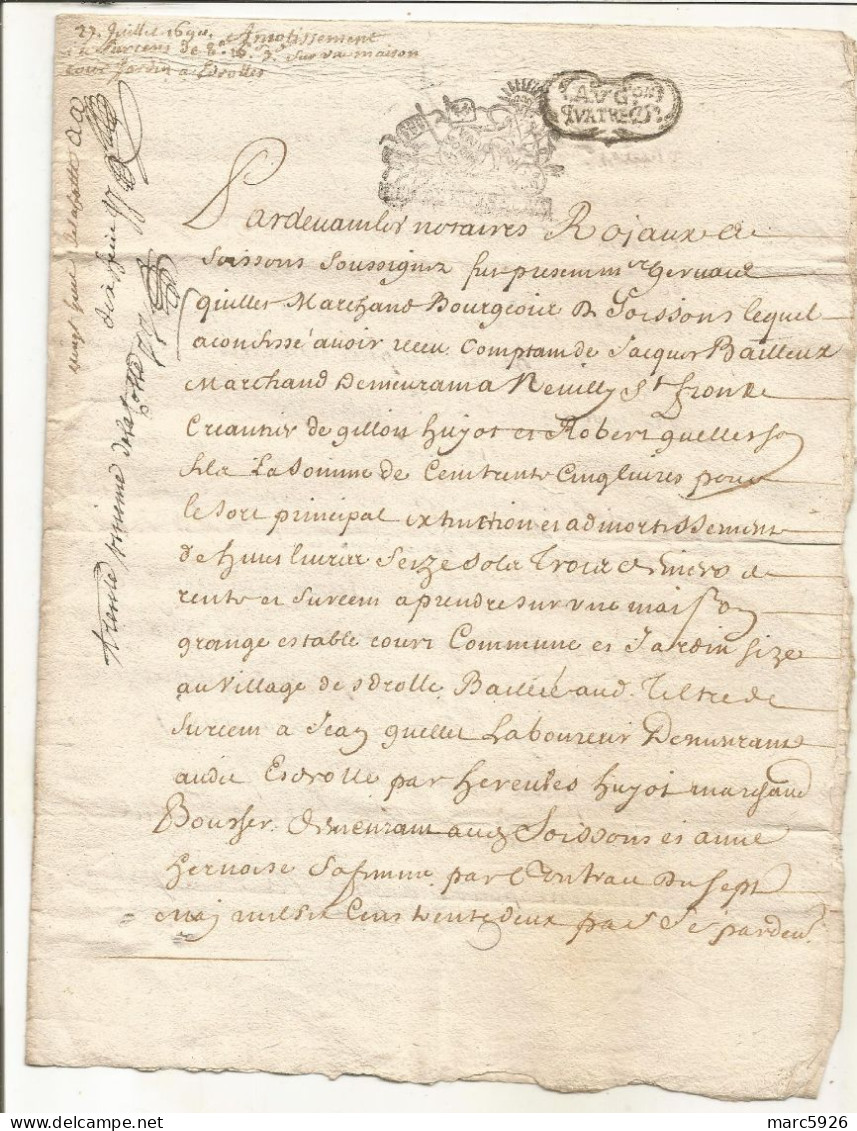 27. Juillet 1690. Amortissement
Surcens de 8# 16s 3d sur une maison
cour Jardin a Edrolles
AVG.ON
QVATRE D.
Pardevant les notaires Rojaux a
Soissons soussignez fut present mre Gervais
quillet Marchand Bourgeois de Soissons lequel
a confessé avoir receu Comptant de Jacques Bailleux
Marchand Demeurant a Neuilly St front
Creantier de gillon huyot et Robert quellet son
fils La somme de Cent trente Cinq livres pour
le sort principal extinction et admortissement
de huit livres seize sols trois deniers de
rente et surcens a prendre sur une maison
grange estable court Commune et Jardin size
au village de Edrolle Baillé aud. tiltre de
surcens a Jean quellet Laboureur Demeurant
audit Esdrolle par hercules huyot marchand
Boursier demeurant aud Soissons et anne
hernoise sa femme par Contract du sept
may mil six Cens trente deux passé pardevt
vingt huit delabatte
trente